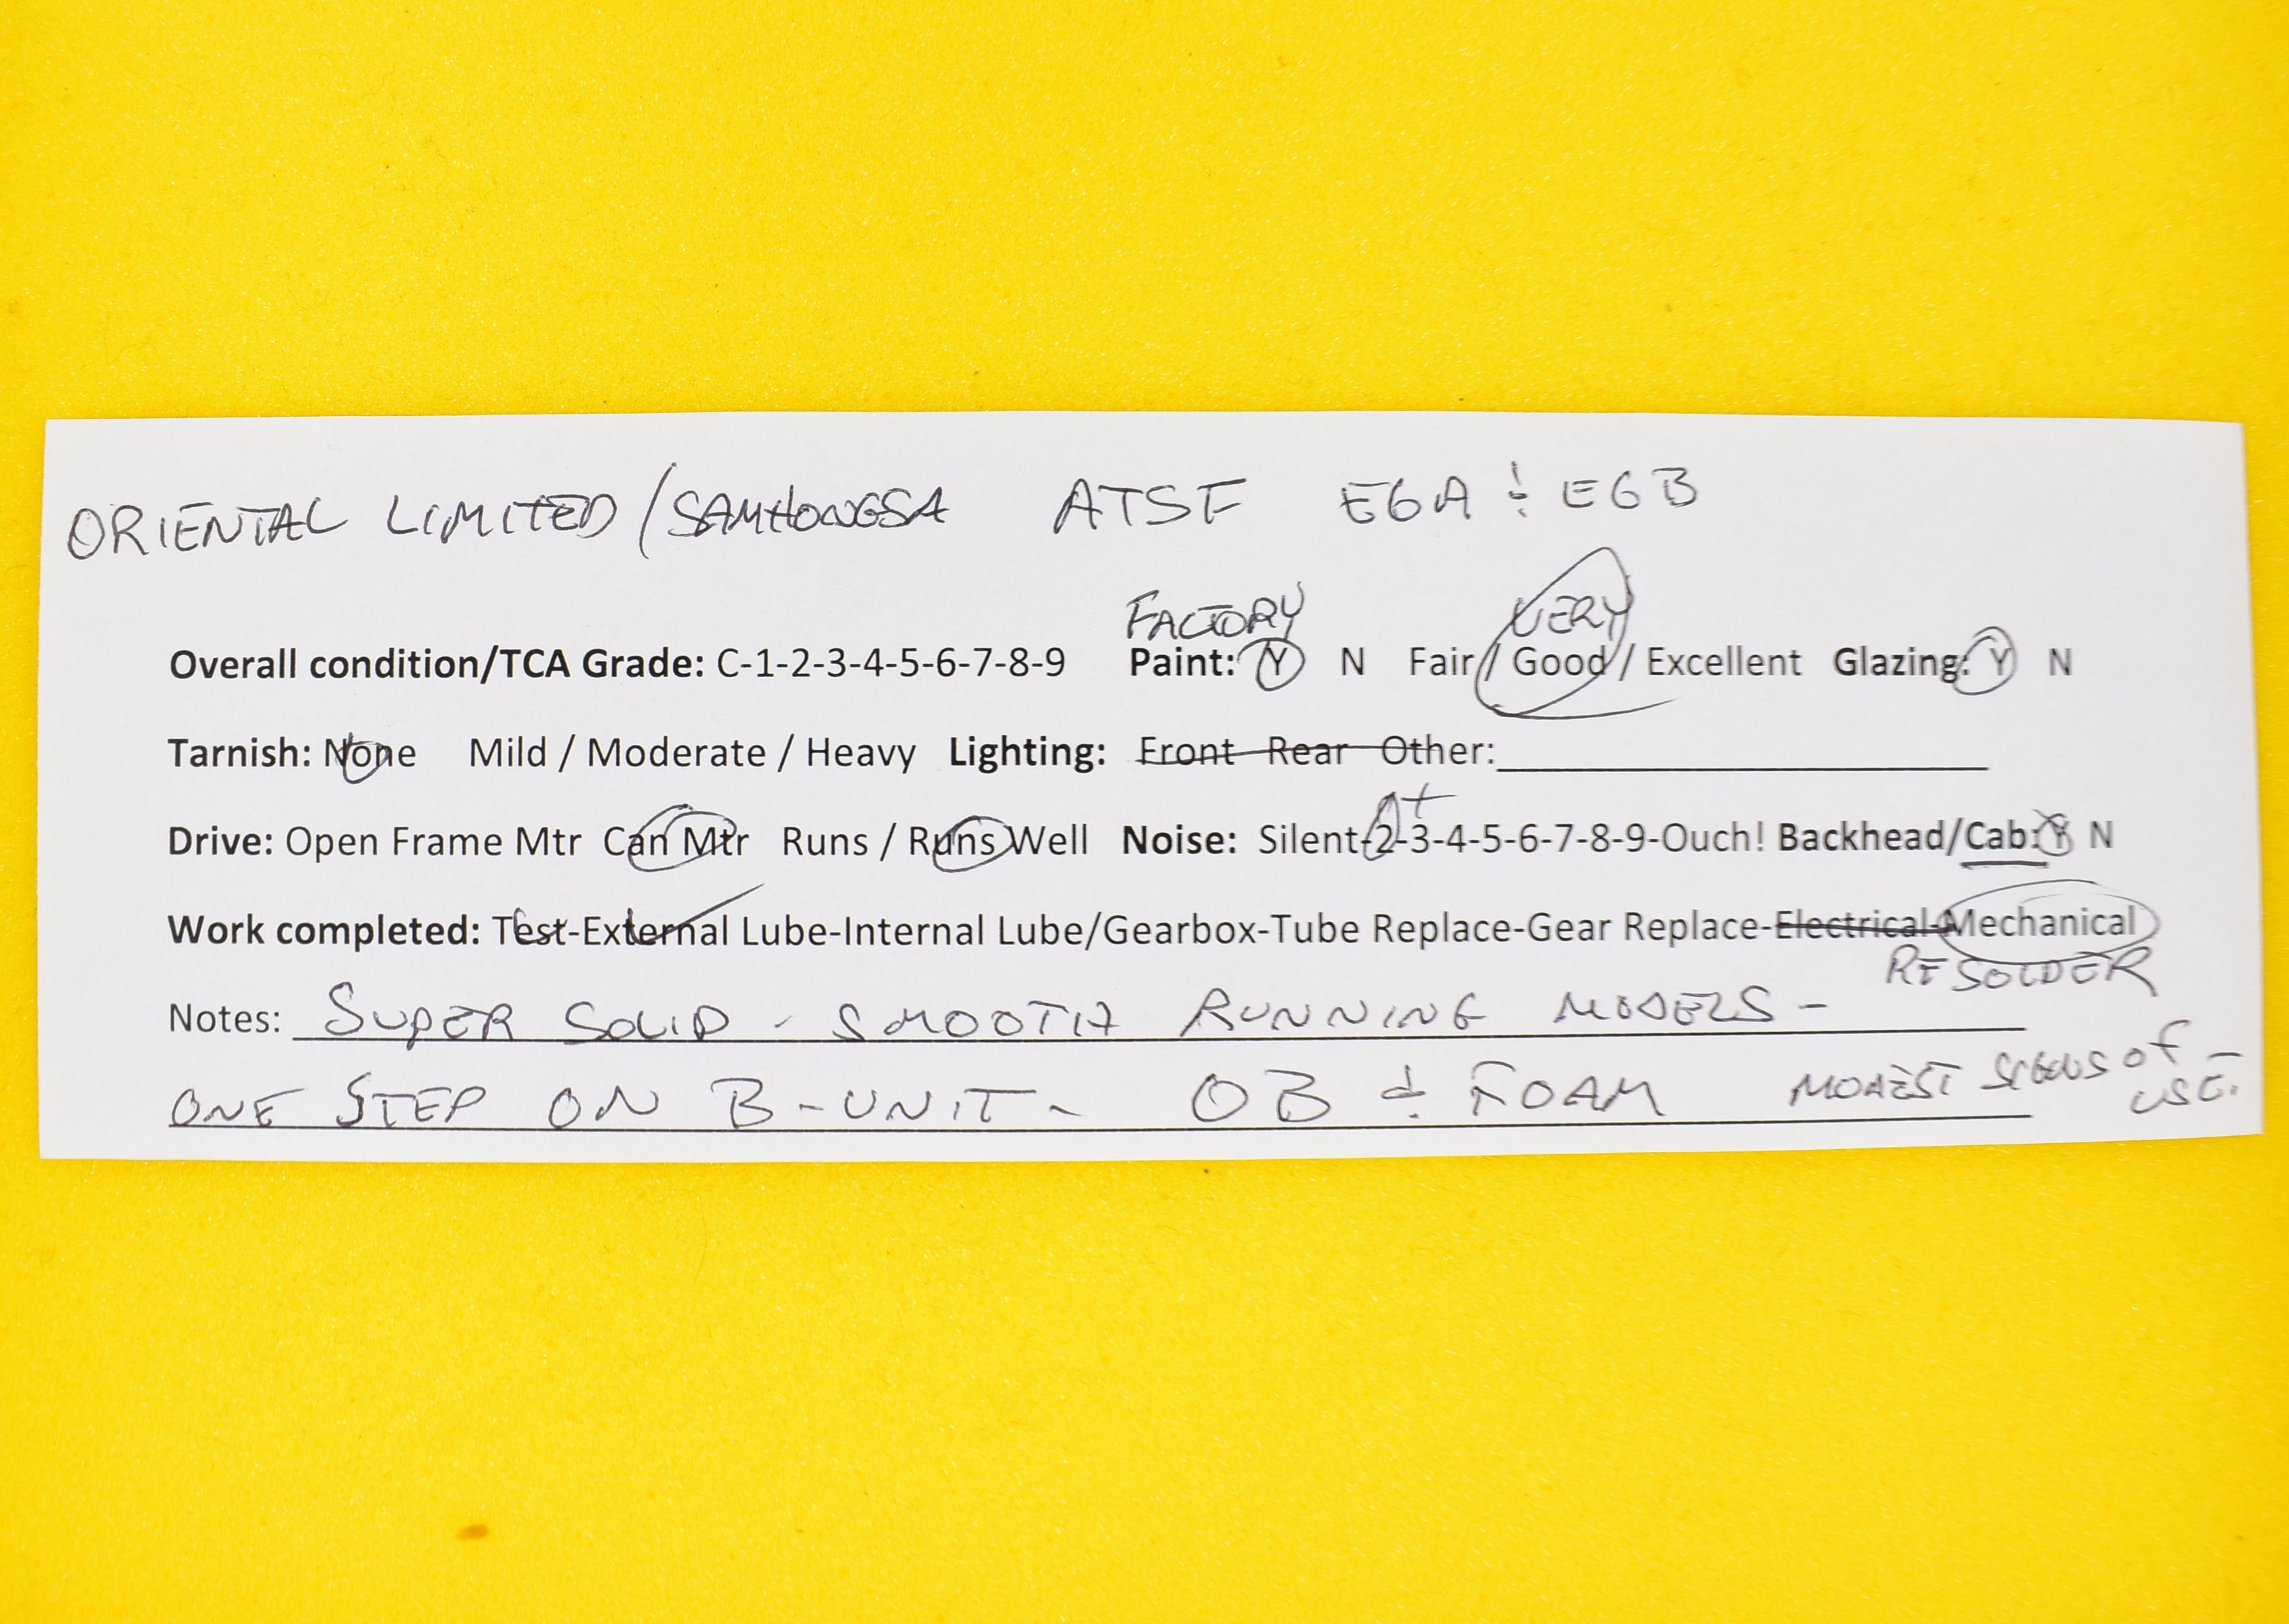 ORIENTAL LIMITED/SAMHONGSA ATSF E6A & E6B
FACTORY VERY
Overall condition/TCA Grade: C-1-2-3-4-5-6-7-8-9 Paint: Y N Fair / Good / Excellent Glazing: Y N
Tarnish: None Mild / Moderate / Heavy Lighting: Front Rear Other:
+
Drive: Open Frame Mtr Can Mtr Runs / Runs Well Noise: Silent-2-3-4-5-6-7-8-9-Ouch! Backhead/Cab: Y N
Work completed: Test-External Lube-Internal Lube/Gearbox-Tube Replace-Gear Replace-Electrical-Mechanical
RESOLDER
Notes: SUPER SOLID - SMOOTH RUNNING MODELS -
ONE STEP ON B-UNIT - OB & FOAM MODEST SIGNS OF
USE.